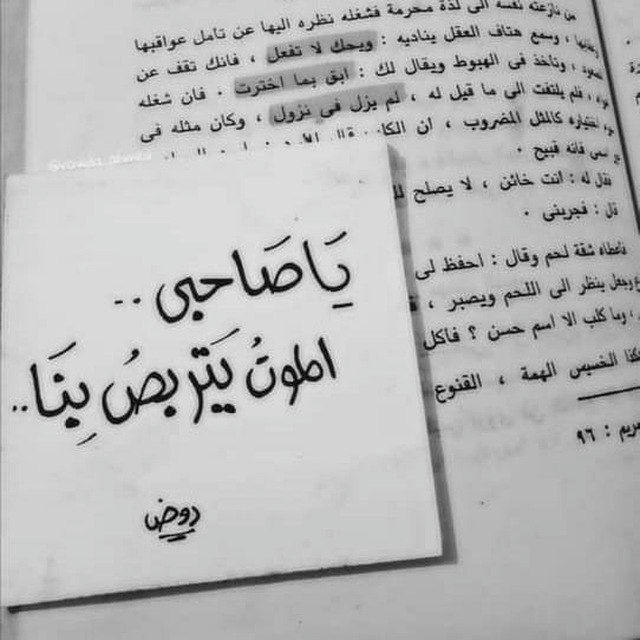 من نازعته نفسه الى لذة محرمة فشغله نظره اليها عن تأمل عواقبها
، وسمع هتاف العقل يناديه : ويحك لا تفعل ، فانك تقف عن
الصعود ، وتأخذ فى الهبوط ويقال لك : ابق بما اخترت . فان شغله
هواه ، فلم يلتفت الى ما قيل له ، لم يزل فى نزول ، وكان مثله فى
سوء اختياره كالمثل المضروب ، ان الكلب قال
فانه قبيح .
فقال له : انت خائن ، لا يصلح
قال : فجربنى .
فاعطاه شقة لحم وقال : احفظ لى
وجعل ينظر الى اللحم ويصبر ،
، وما كلب الا اسم حسن ؟ فأكل
هكذا الخسيس الهمة ، القنوع
مريم : ٩٦
يَا صَاحبى ..
الموتُ يَتربصُ بِنَا ..
دوِّض